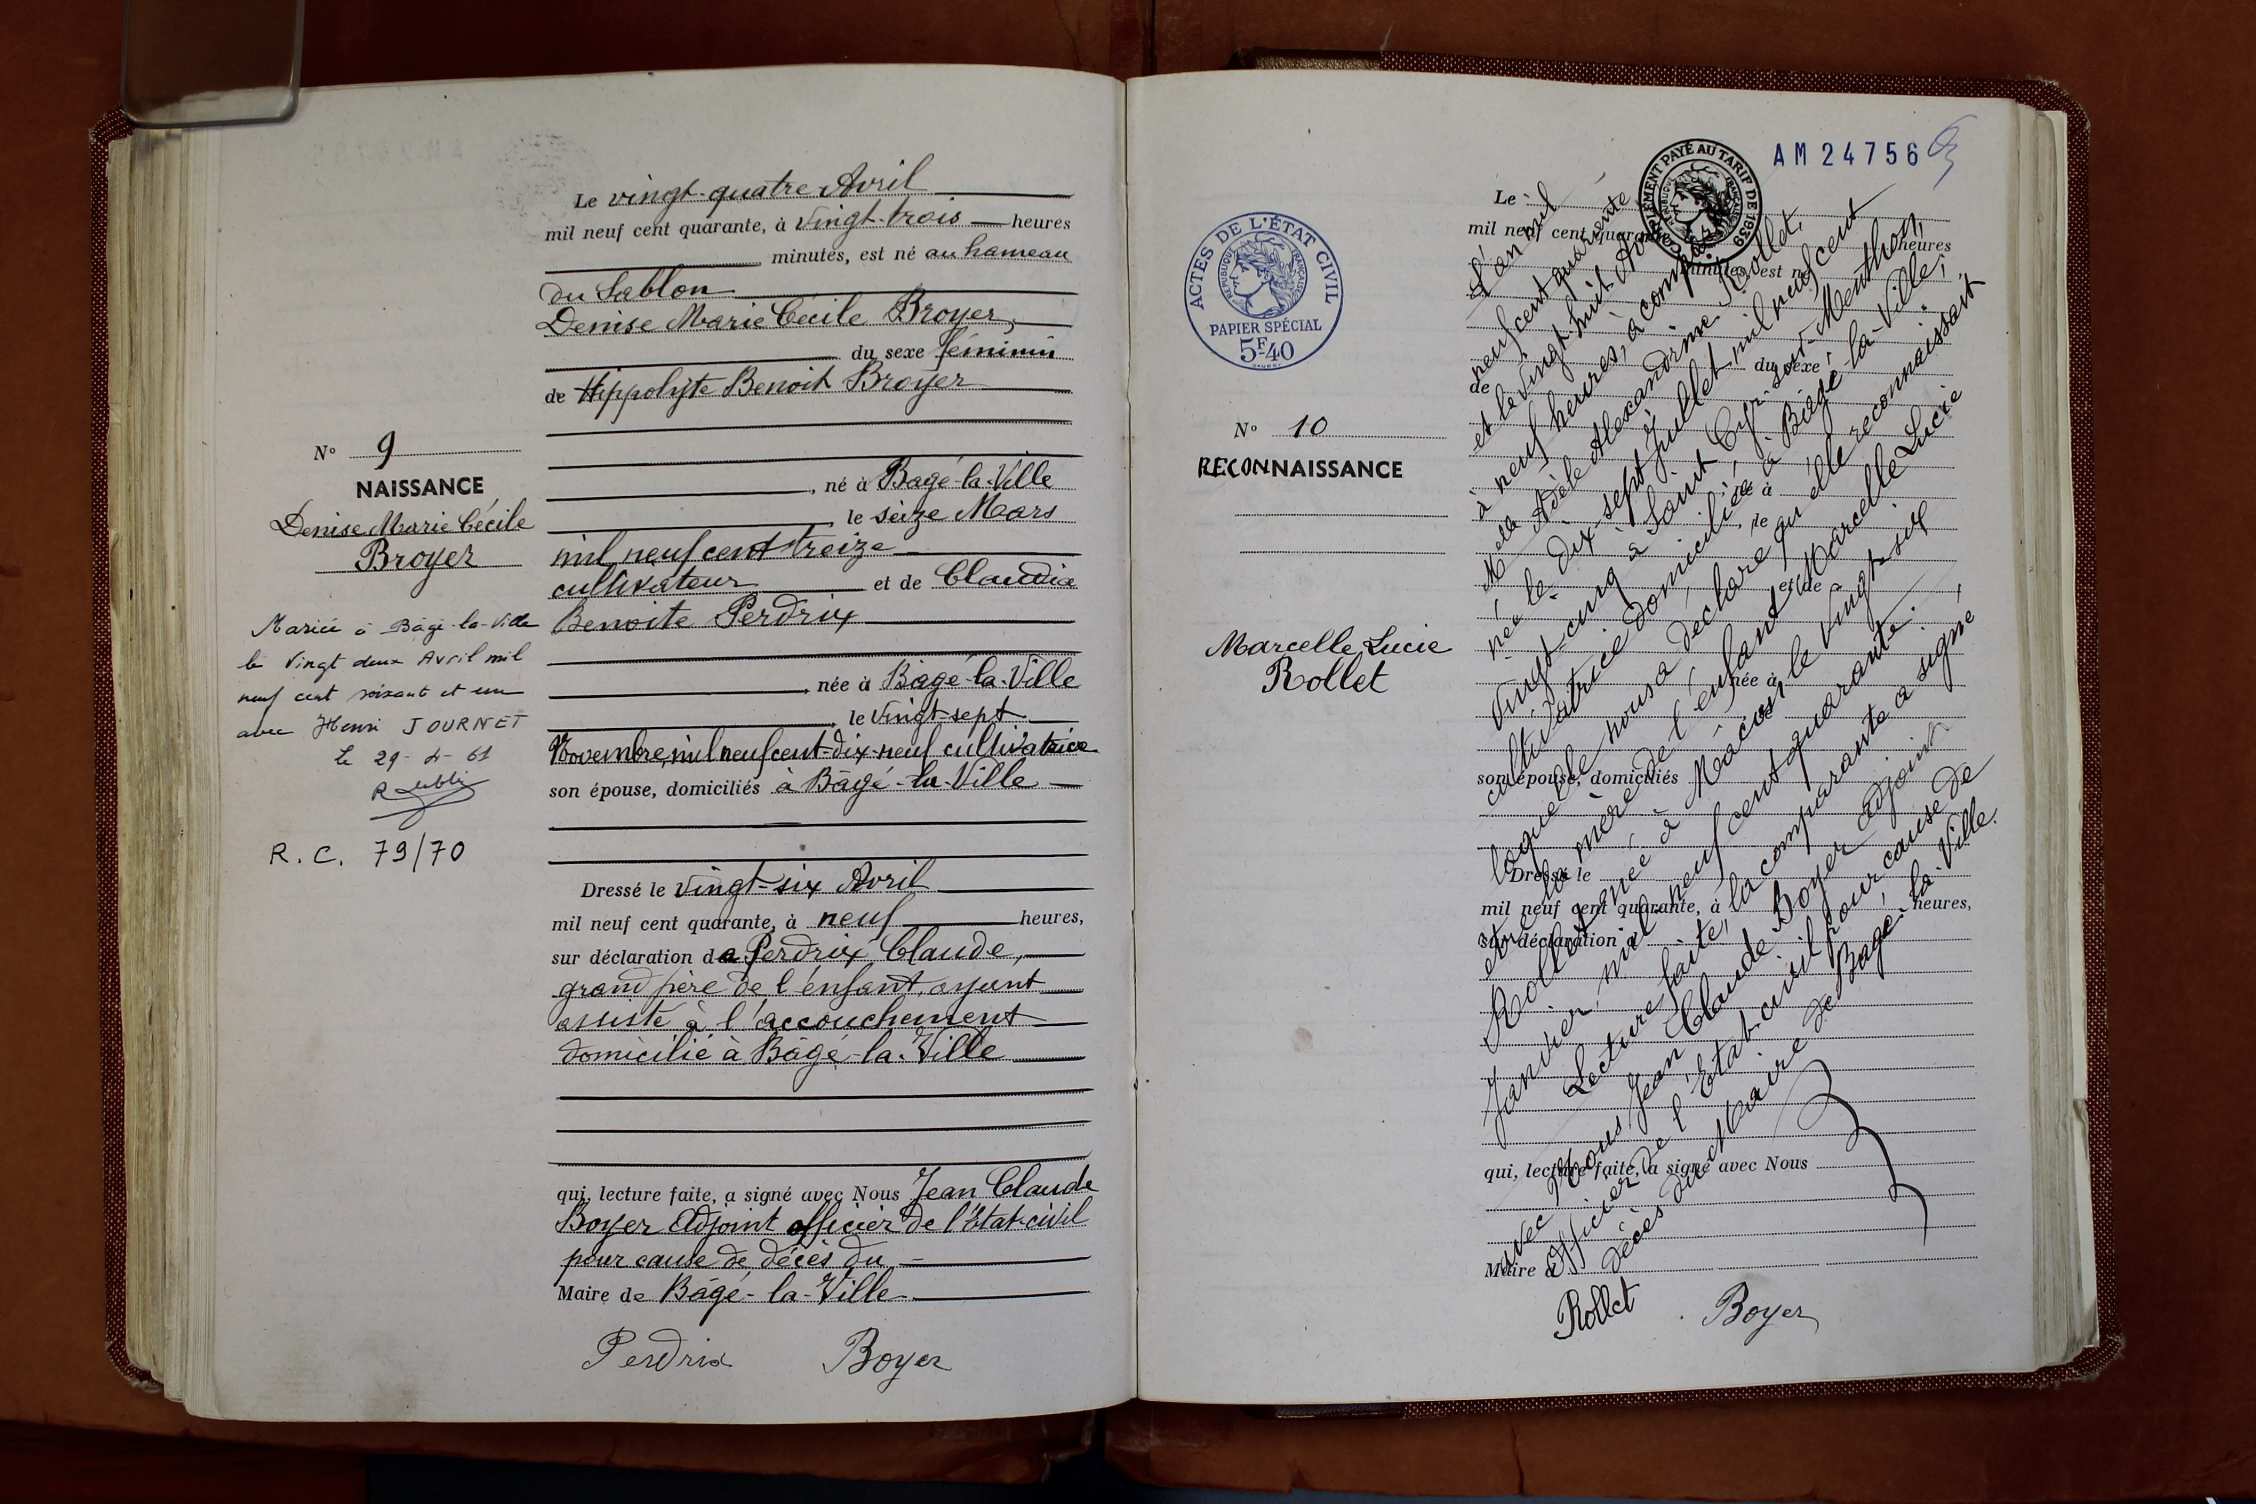 Le vingt-quatre Avril
mil neuf cent quarante, à vingt-trois heures
minutes, est né au hameau
du Sablon
Denise Marie Cécile Broyer,
du sexe féminin
de Hippolyte Benoit Broyer
, né à Bagé-la-Ville
le seize Mars
mil neuf cent treize
cultivateur et de Claudia
Benoite Perdrix
, née à Bâgé-la-Ville
, le vingt-sept
Novembre, mil neuf cent-dix-neuf cultivatrice
son épouse, domiciliés à Bâgé-la-Ville
Dressé le vingt-six Avril
mil neuf cent quarante, à neuf heures,
sur déclaration de Perdrix Claude,
grand père de l'enfant, ayant
assisté à l'accouchement
domicilié à Bâgé-la-Ville
qui, lecture faite, a signé avec Nous Jean Claude
Boyer Adjoint officier de l'Etat-civil
pour cause de décès du
Maire de Bâgé-la-Ville
Perdrix Boyer
N° 9
NAISSANCE
Denise Marie Cécile
Broyer
Mariée à Bâgé-la-Ville
le vingt deux Avril mil
neuf cent soixante et un
avec Henri JOURNET
Le 29-4-61
R. C. 79/70
AM 24756
COMPLÉMENT PAYÉ AU TARIF DE 1959
RÉPUBLIQUE FRANÇAISE
ACTES DE L'ÉTAT CIVIL
RÉPUBLIQUE FRANÇAISE
PAPIER SPÉCIAL
5F40
N° 10
RECONNAISSANCE
Marcelle Lucie
Rollet
Le
mil neuf cent quarante
heures
minutes, est né
du sexe
de
né à
le
et de
née à
son épouse, domiciliés
Dressé le
mil neuf cent quarante, à heures,
sur déclaration
qui, lecture faite, a signé avec Nous
Maire d
L'an mil
neuf cent quarante
et le vingt huit Avril
à neuf heures, a comparu
Melle Adèle Alexandrine Rollet,
née le dix-sept Juillet mil neuf cent
vingt-cinq à Saint Cyr sur Menthon,
cultivatrice domiciliée à Bâgé-la-Ville,
laquelle nous a déclaré qu'elle reconnaissait
être la mère de l'enfant Marcelle Lucie
Rollet née à Mâcon le vingt-six
Janvier mil neuf cent quarante.
Lecture faite, la comparante a signé
avec Nous Jean Claude Boyer adjoint
officier de l'Etat-civil pour cause de
décès du Maire de Bagé-la-Ville.
Rollet Boyer